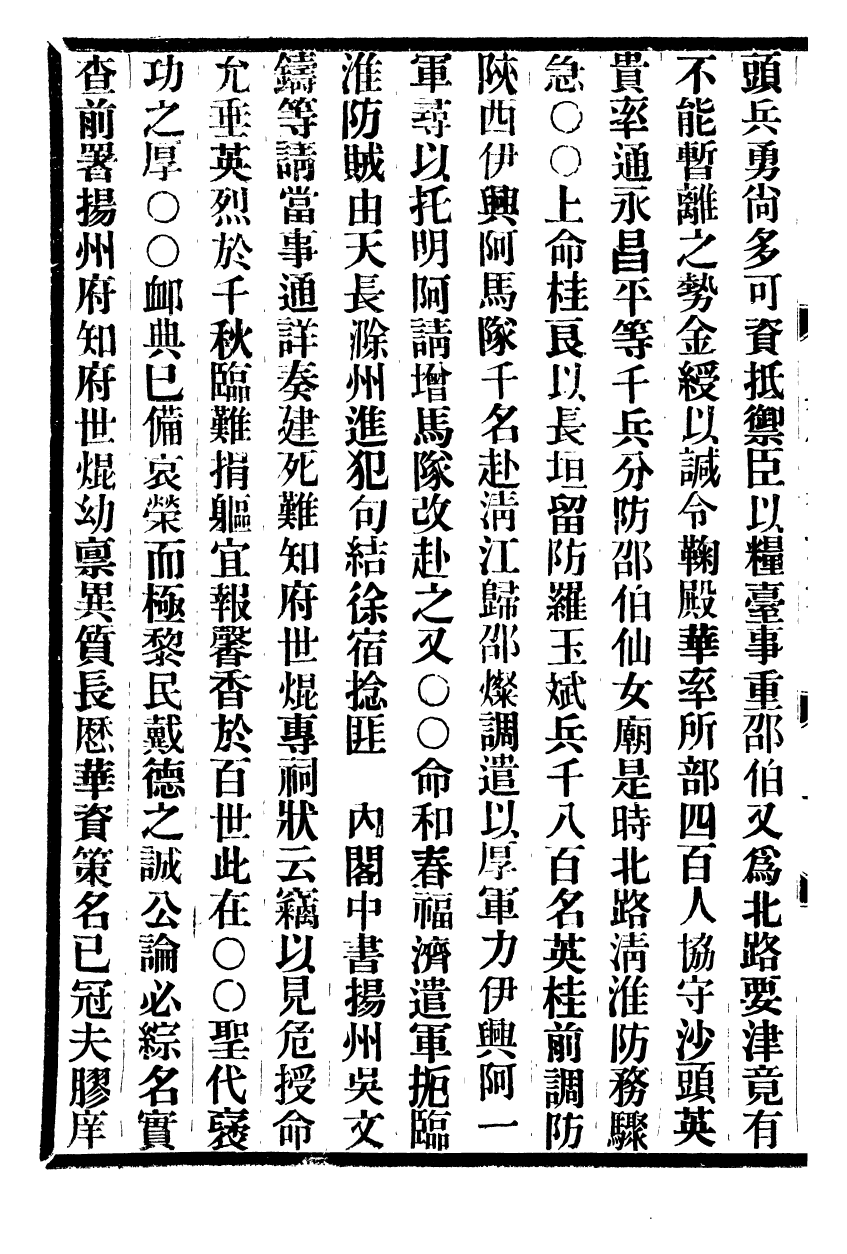 頭兵勇尙多可資抵禦臣以糧臺事重邵伯又爲北路要津竟有
不能暫離之勢金綬以諴令鞠殿華率所部四百人協守沙頭英
貴率通永昌平等千兵分防邵伯仙女廟是時北路淸淮防務驟
急〇〇上命桂良以長垣留防羅玉斌兵千八百名英桂前調防
陝西伊興阿馬隊千名赴淸江歸邵燦調遣以厚軍力伊興阿一
軍尋以托明阿請增馬隊改赴之又〇〇命和春福濟遣軍扼臨
淮防賊由天長滁州進犯句結徐宿捻匪　內閣中書揚州吳文
鑄等請當事通詳奏建死難知府世焜專祠狀云竊以見危授命
允垂英烈於千秋臨難捐軀宜報馨香於百世此在〇〇聖代褒
功之厚〇〇卹典已備哀榮而極黎民戴德之誠公論必綜名實
查前署揚州府知府世焜幼禀異質長厯華資策名已冠夫膠庠